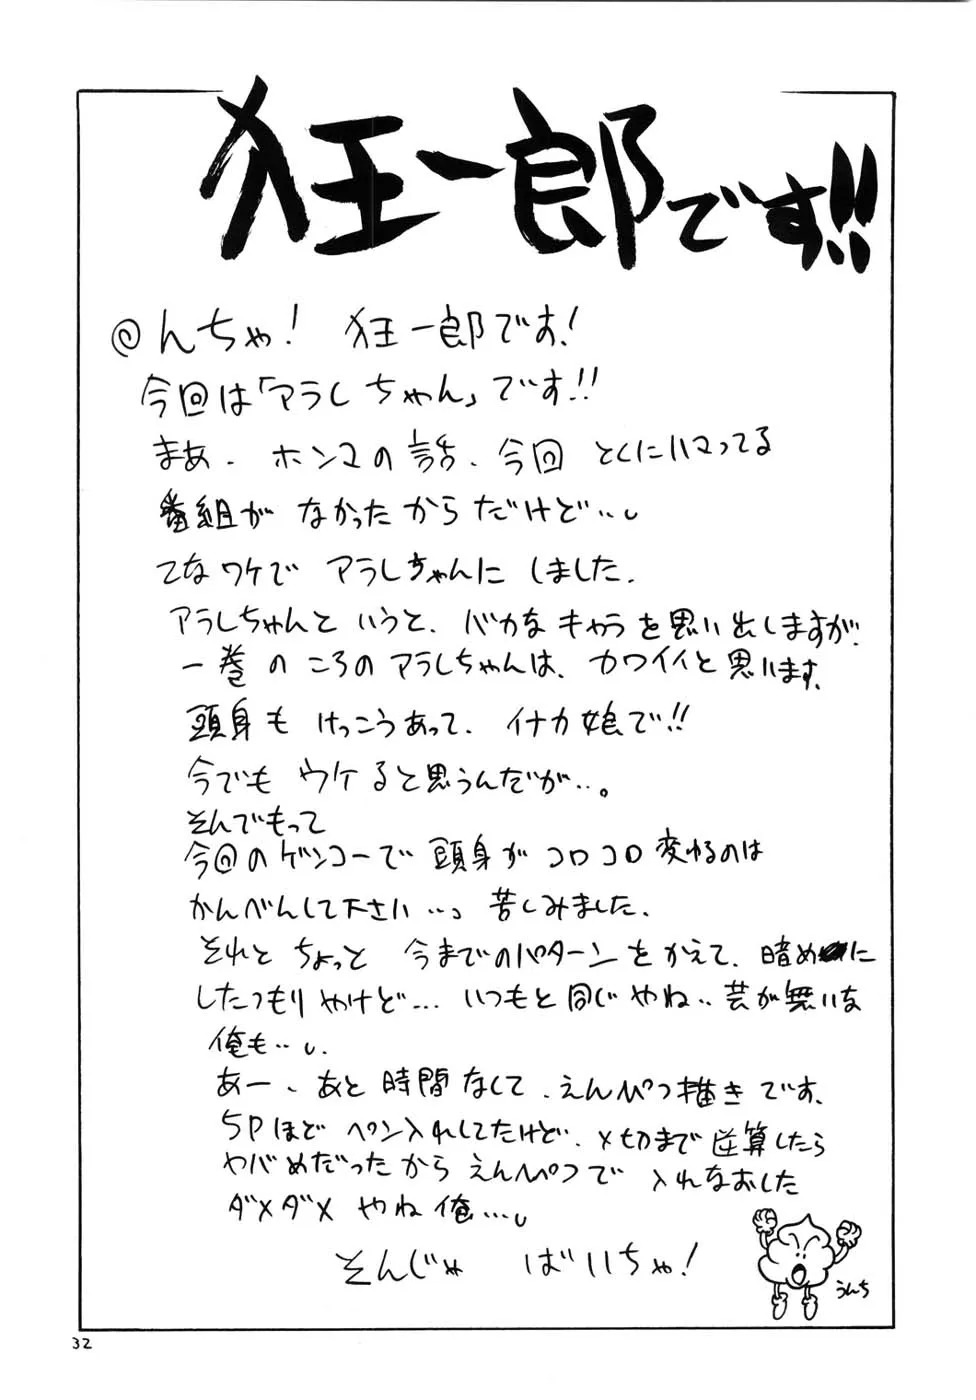 狂一郎です!!
◎んちゃ! 狂一郎です!
今回は「アラレちゃん」です!!
まぁ、ホンマの話、今回 とくにハマってる
番組が なかったからだけど…。
てなワケで アラレちゃんに しました。
アラレちゃんと いうと、バカな キャラ を思い出しますが、
一巻 の ころの アラレちゃんは、カワイイと思います。
頭身も けっこうあって、イナカ娘で!!
今でも ウケると思うんだが…。
そんでもって
今回のゲンコーで 頭身が コロコロ 変わるのは
かんべんして下さい…。苦しみました。
それと ちょっと 今までのパターン を かえて、暗めに
したつもり やけど… いつもと 同じ やね… 芸が無いな
俺も…。
あー、あと 時間 なくて、えんぴつ描き です。
5Pほど ペン入れしてたけど、〆切まで 逆算したら
ヤバめだったから えんぴつで 入れなおした
ダメダメ やね 俺…。
そんじゃ ばいちゃ!
うんち
32